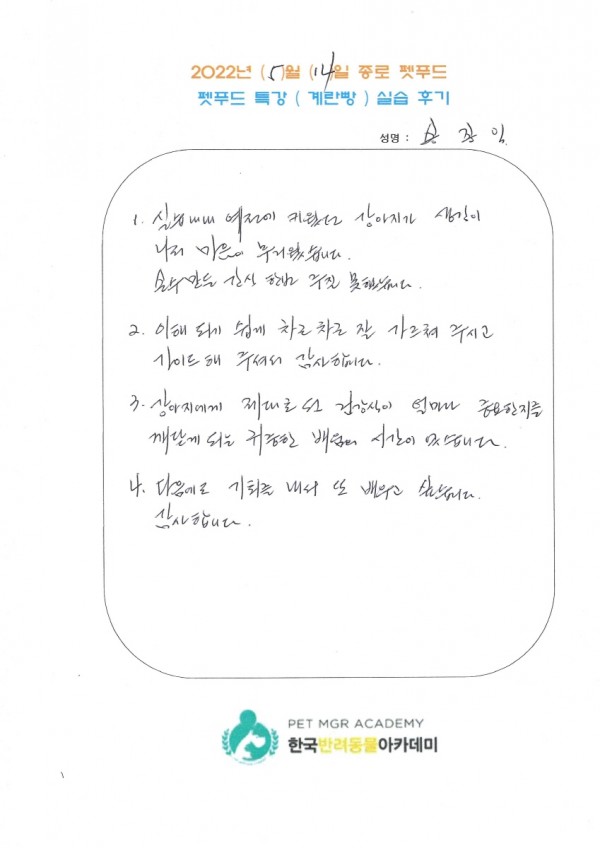 2022년 (5)월 (14)일 종로 펫푸드
펫푸드 특강 ( 계란빵 ) 실습 후기
성명 : 장익
1. 실습내내 예전에 키웠던 강아지가 생각이
나서 마음이 무거웠습니다.
손수만든 간식 한번 주질 못했습니다.
2. 이해 되기 쉽게 차근차근 잘 가르쳐 주시고
가이드해 주셔서 감사합니다.
3. 강아지에게 제대로 된 건강식이 얼마나 중요한지를
깨닫게 되는 귀중한 배움의 시간이 였습니다.
4. 다음에도 기회를 내서 또 배우고 싶습니다.
감사합니다.
PET MGR ACADEMY
한국반려동물아카데미